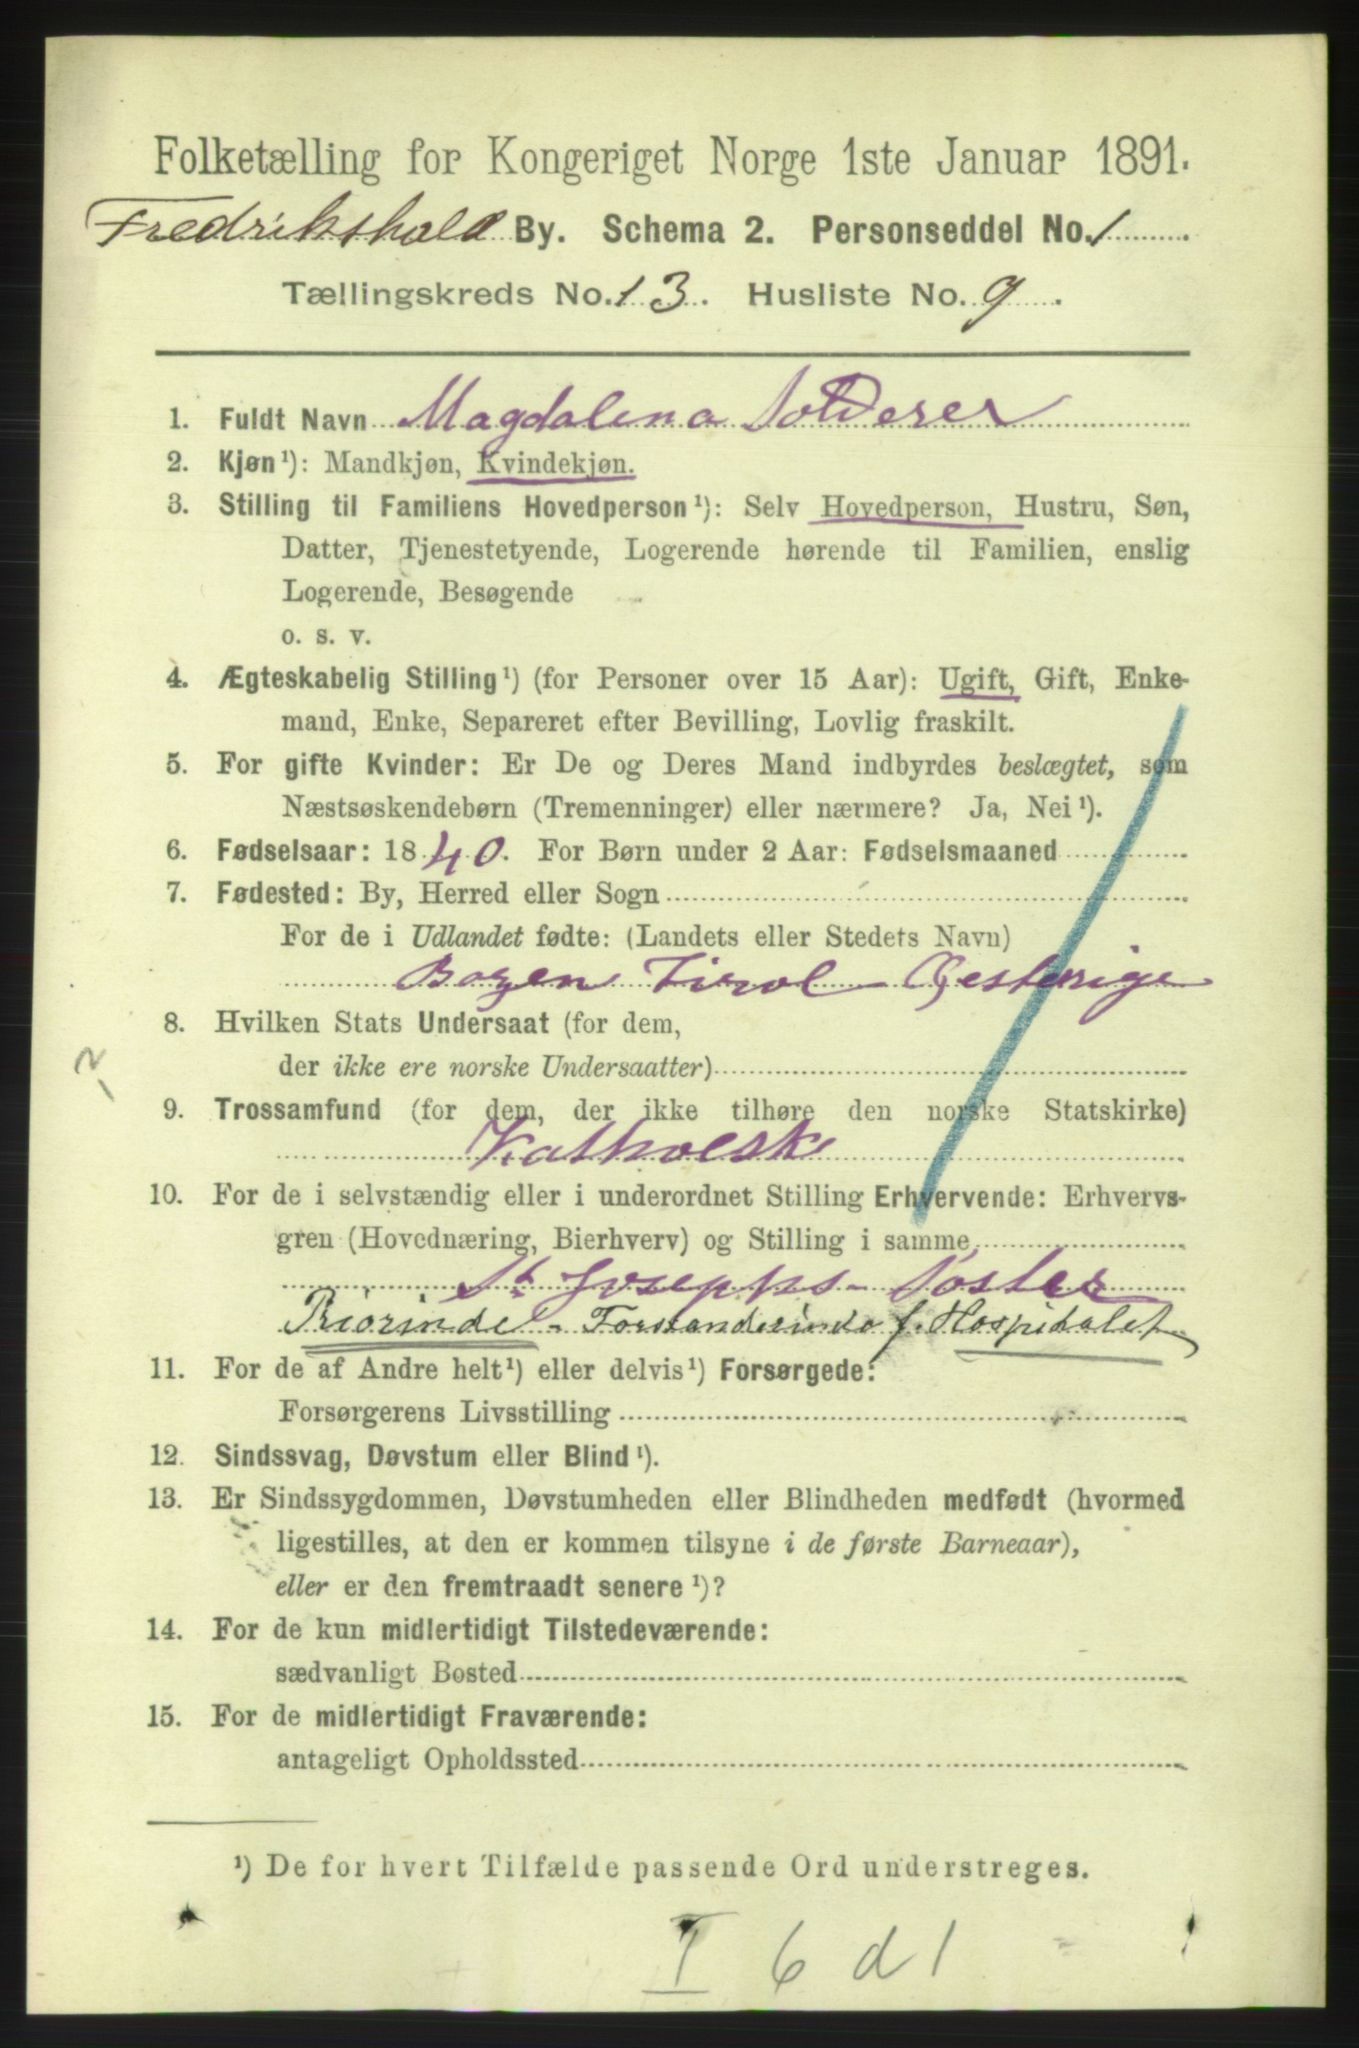 Folketælling for Kongeriget Norge 1ste Januar 1891.
Fredrikshald By. Schema 2. Personseddel No. 1
Tællingskreds No. 13. Husliste No. 9.
1. Fuldt Navn Magdalena Solderer
2. Kjøn¹): Mandkjøn, Kvindekjøn.
3. Stilling til Familiens Hovedperson¹): Selv Hovedperson, Hustru, Søn,
Datter, Tjenestetyende, Logerende hørende til Familien, enslig
Logerende, Besøgende
o. s. v.
4. Ægteskabelig Stilling¹) (for Personer over 15 Aar): Ugift, Gift, Enke-
mand, Enke, Separeret efter Bevilling, Lovlig fraskilt.
5. For gifte Kvinder: Er De og Deres Mand indbyrdes beslægtet, som
Næstsøskendebørn (Tremenninger) eller nærmere? Ja, Nei¹).
6. Fødselsaar: 1840. For Børn under 2 Aar: Fødselsmaaned
7. Fødested: By, Herred eller Sogn
For de i Udlandet fødte: (Landets eller Stedets Navn)
Bozen Tirol - Oesterige
8. Hvilken Stats Undersaat (for dem,
der ikke ere norske Undersaatter)
9. Trossamfund (for dem, der ikke tilhøre den norske Statskirke)
Katholsk
10. For de i selvstændig eller i underordnet Stilling Erhvervende: Erhvervs-
gren (Hovednæring, Bierhverv) og Stilling i samme
St. Josephs-Søster
Priorinde - Forstanderinde f. Hospidalet
11. For de af Andre helt¹) eller delvis¹) Forsørgede:
Forsørgerens Livsstilling
12. Sindssvag, Døvstum eller Blind¹).
13. Er Sindssygdommen, Døvstumheden eller Blindheden medfødt (hvormed
ligestilles, at den er kommen tilsyne i de første Barneaar),
eller er den fremtraadt senere¹)?
14. For de kun midlertidigt Tilstedeværende:
sædvanligt Bosted
15. For de midlertidigt Fraværende:
antageligt Opholdssted
¹) De for hvert Tilfælde passende Ord understreges.
I 6 d 1